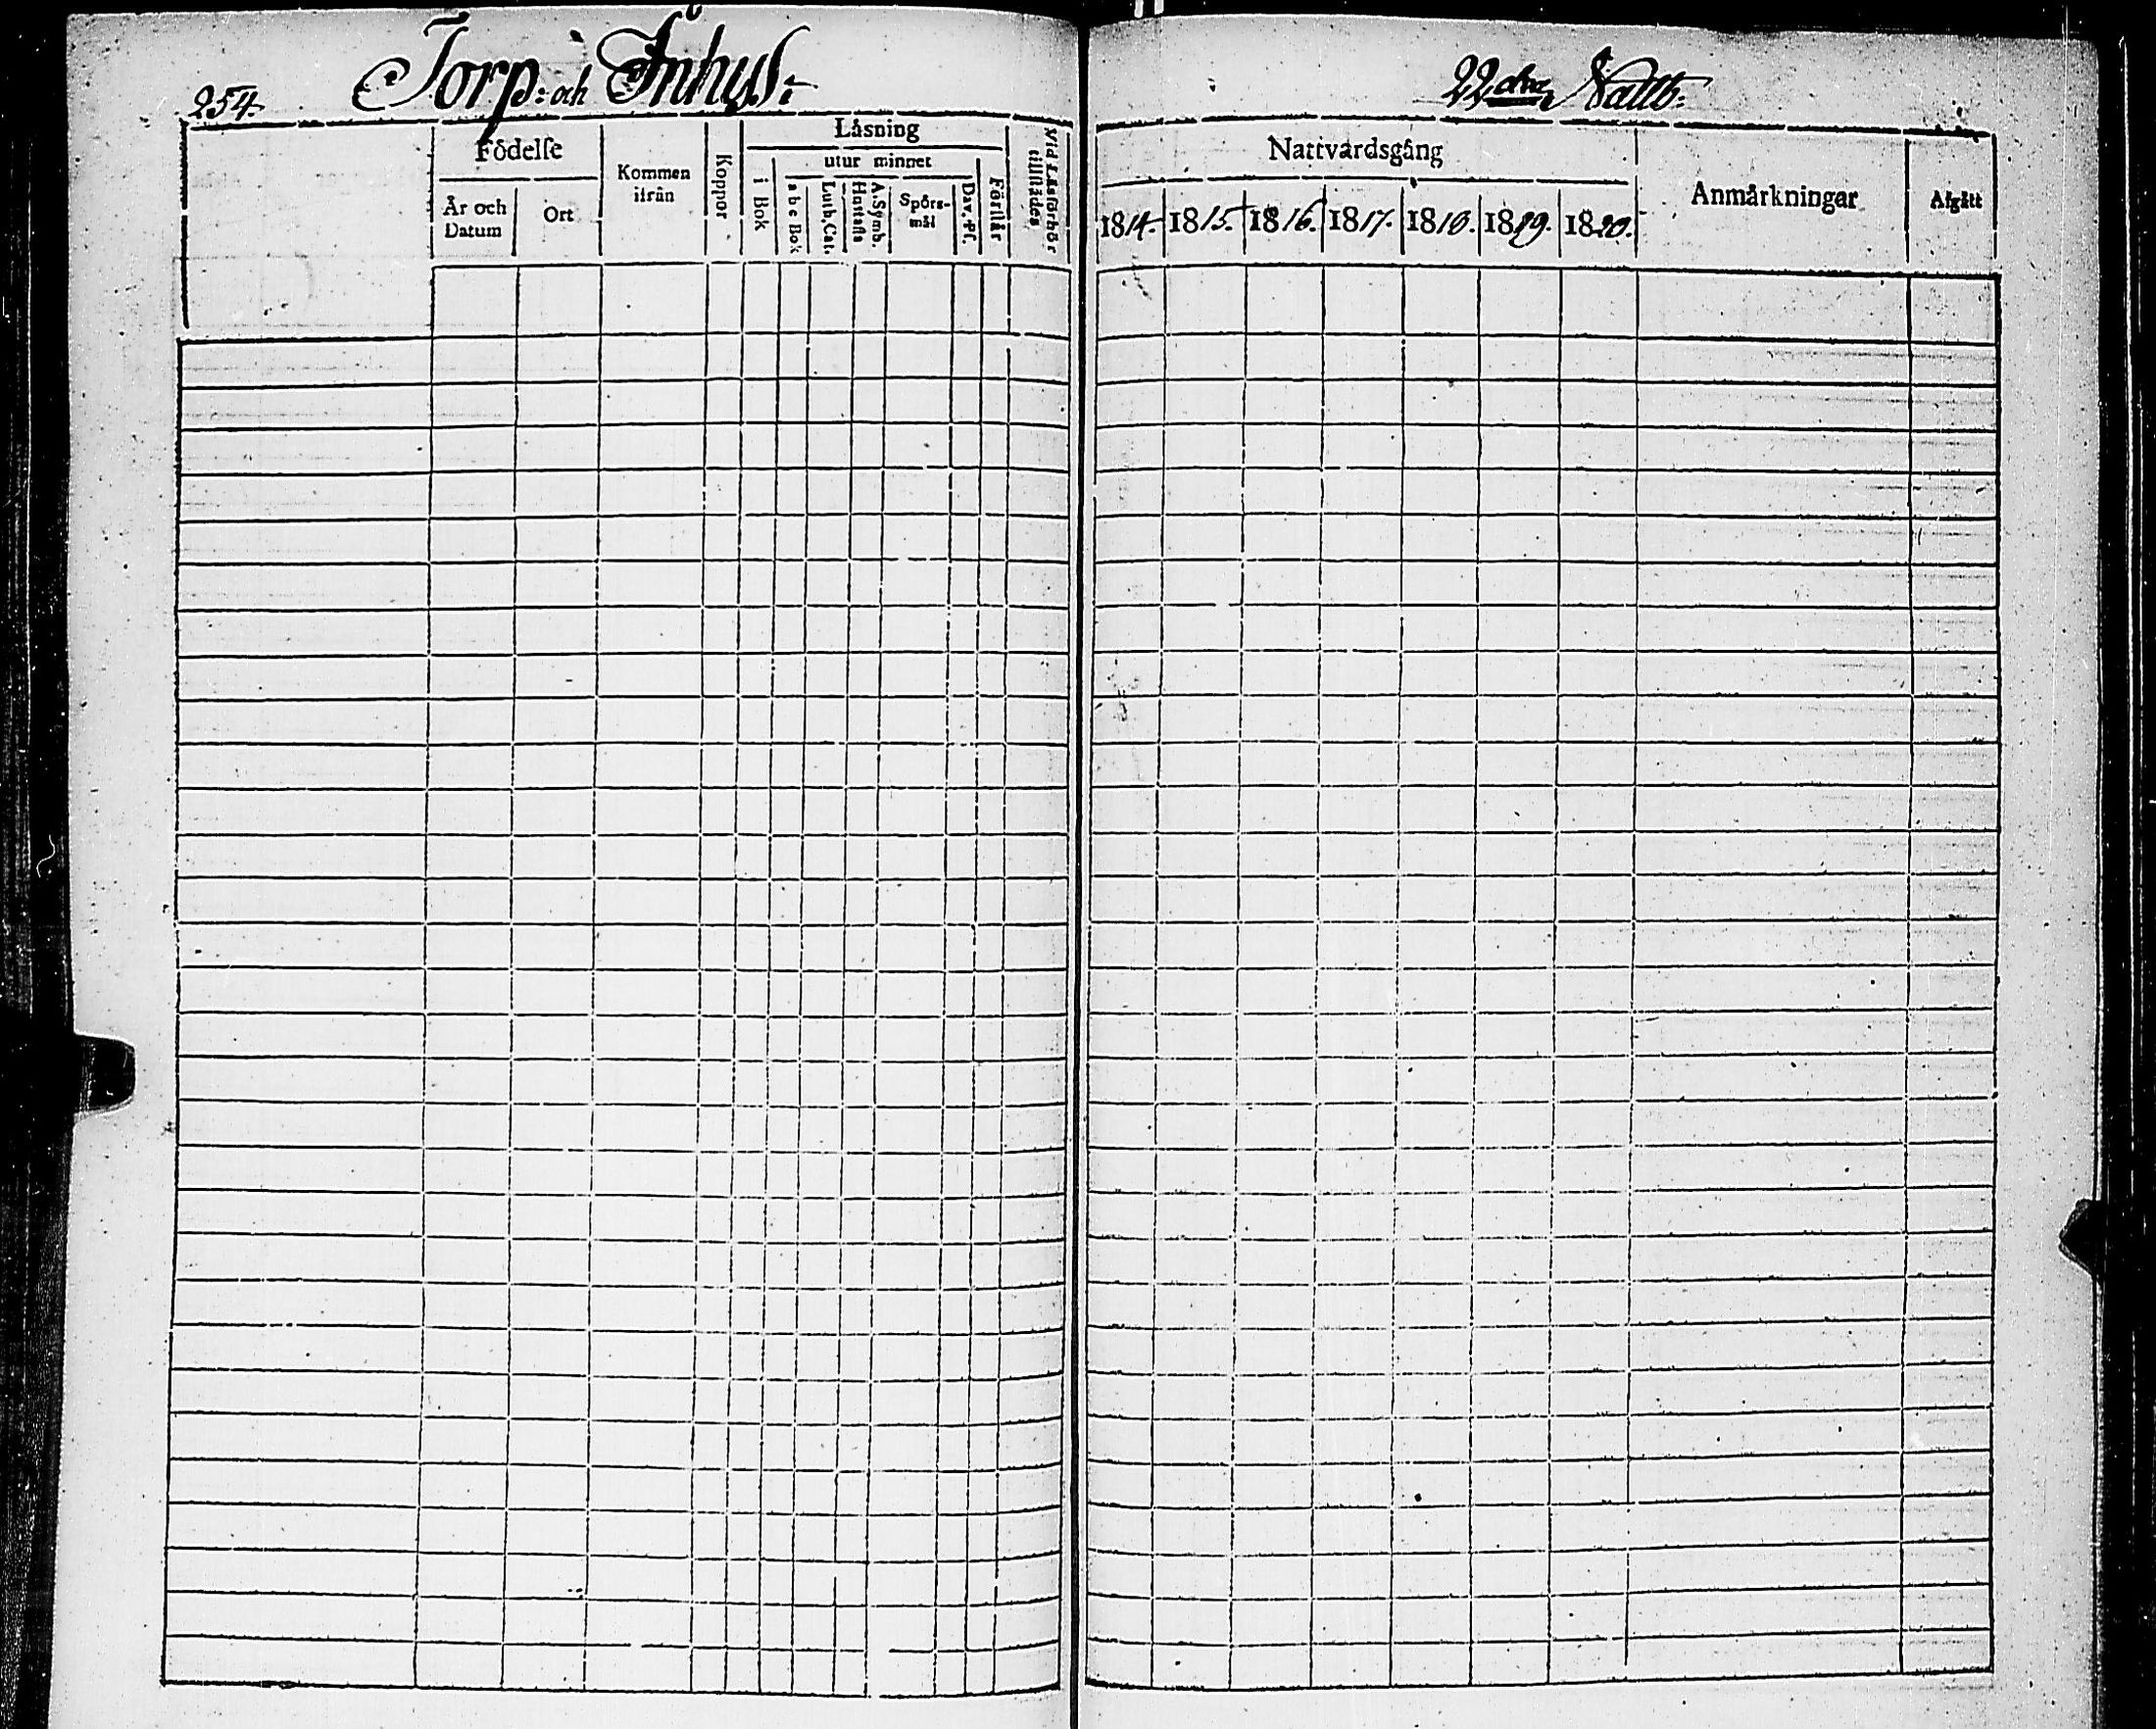 254. Torp: och Inhys:
22dra Nattb:
Födelse
År och Datum
Ort
Kommen ifrån
Koppor
Läsning
i Bok
utur minnet
a b c Bok
Luth. Cat.
Hustafla
A. Symb.
Spörsmål
Dav. Pf.
Förstår
Vid Läsförhör tillstädes
Nattvardsgång
1814. 1815. 1816. 1817. 1818. 1819. 1820.
Anmärkningar
Afgått